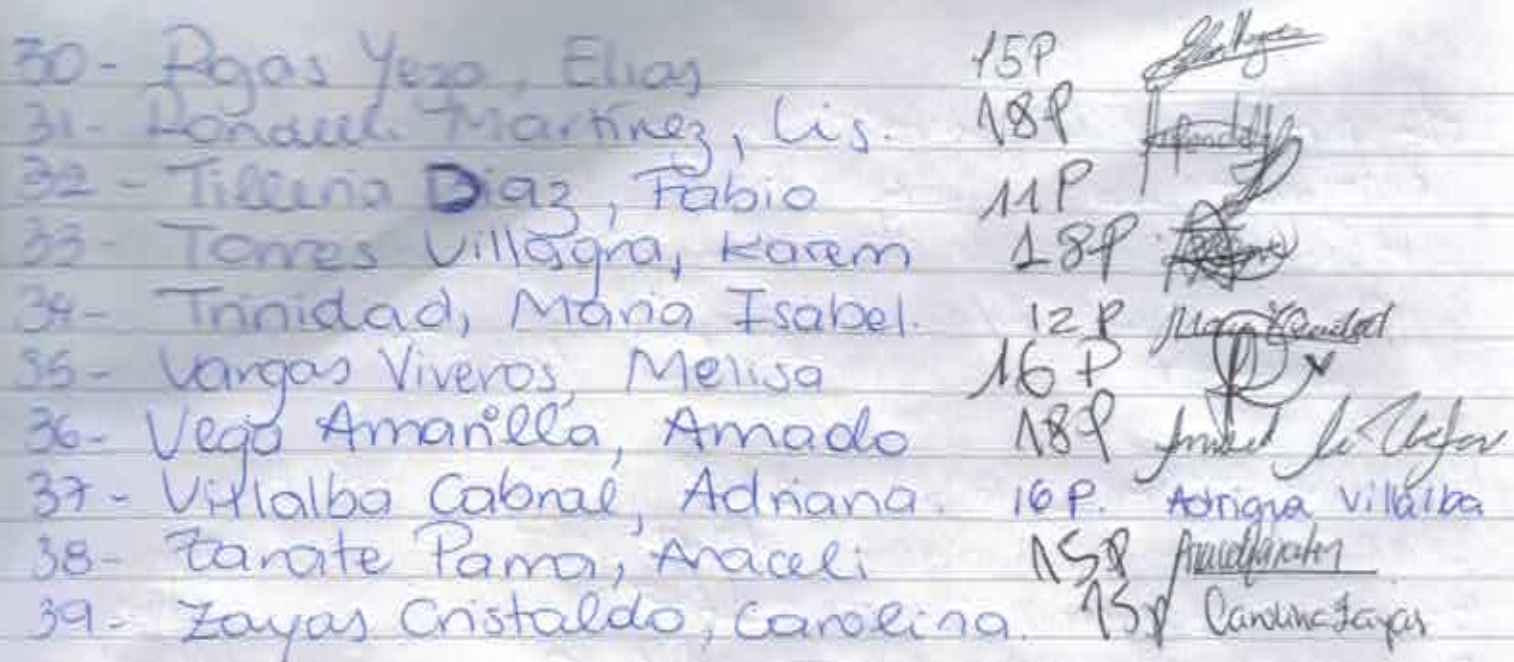 30- Rojas Yezo, Elias 15P
31- Martínez, Lis. 18P
32- Diaz, Fabio 11P
33- Torres Villagra, Karem 18P
34- Trinidad, Maria Isabel. 12P
35- Vargas Viveros, Melisa 16 P
36- Vega Amarilla, Amado 18P
37- Villalba Cabral, Adriana. 16 P. Adriana Villalba
38- Zarate Parra, Araceli 15P
39- Zayas Cristaldo, Carolina. 15p Carolina Zayas